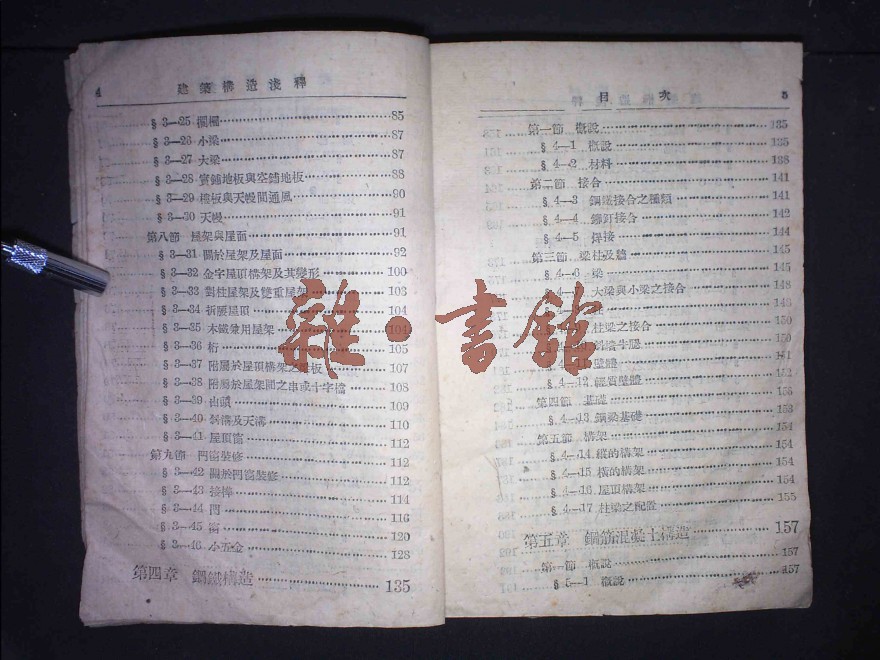 4 建築構造淺釋
§ 3—25 欄柵 85
§ 3—26 小梁 87
§ 3—27 大梁 87
§ 3—28 實鋪地板與空鋪地板 88
§ 3—29 樓板與天幔間通風 90
§ 3—30 天幔 91
第八節 屋架與屋面 91
§ 3—31 關於屋架及屋面 92
§ 3—32 金字屋頂構架及其變形 100
§ 3—33 對柱屋架及雙重屋架 103
§ 3—34 折腰屋頂 104
§ 3—35 木鐵兼用屋架 104
§ 3—36 桁 105
§ 3—37 附屬於屋頂構架之 板 107
§ 3—38 附屬於屋架間之串或十字檔 108
§ 3—39 山頭 109
§ 3—40 斜溝及天溝 110
§ 3—41 屋頂窗 112
第九節 門窗裝修 112
§ 3—42 關於門窗裝修 112
§ 3—43 接榫 114
§ 3—44 門 116
§ 3—45 窗 120
§ 3—46 小五金 128
第四章 鋼鐵構造 135
目次 5
第一節 概說 135
§ 4—1 概說 135
§ 4—2 材料 138
第二節 接合 141
§ 4—3 鋼鐵接合之種類 141
§ 4—4 鉚釘接合 142
§ 4—5 焊接 144
第三節 梁柱及牆 145
§ 4—6 梁 145
§ 4—7 大梁與小梁之接合 148
148
柱梁之接合 150
151
§ 4—11 壁體 151
§ 4—12 輕質壁體 152
第四節 基礎 153
§ 4—13 鋼梁基礎 153
第五節 構架 154
§ 4—14 縱的構架 154
§ 4—15 橫的構架 154
§ 4—16 屋頂構架 154
§ 4—17 柱梁之配置 155
第五章 鋼筋混凝土構造 157
第一節 概說 157
§ 5—1 概說 157
雜·書館